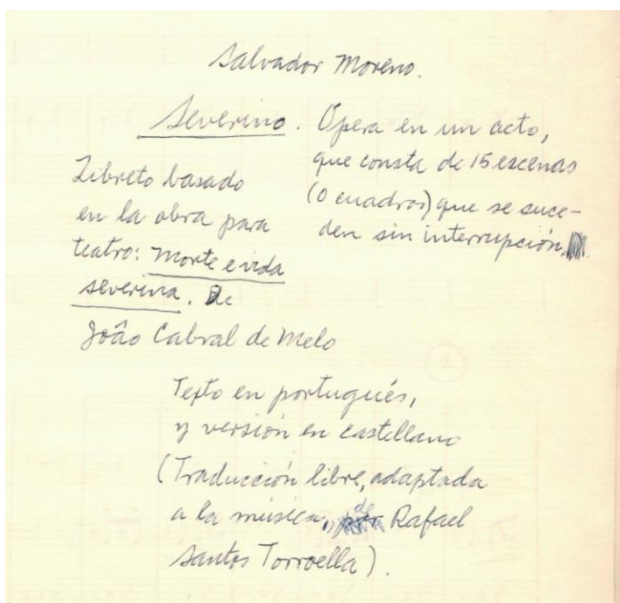 Salvador Moreno.
Severino. Opera en un acto,
que consta de 15 escenas
(o cuadros) que se suce-
den sin interrupción.
Libreto basado
en la obra para
teatro: Morte e vida
severina. De
João Cabral de Melo
Texto en portugués,
y versión en castellano
(Traducción libre, adaptada
a la música, de Rafael
Santos Torroella).